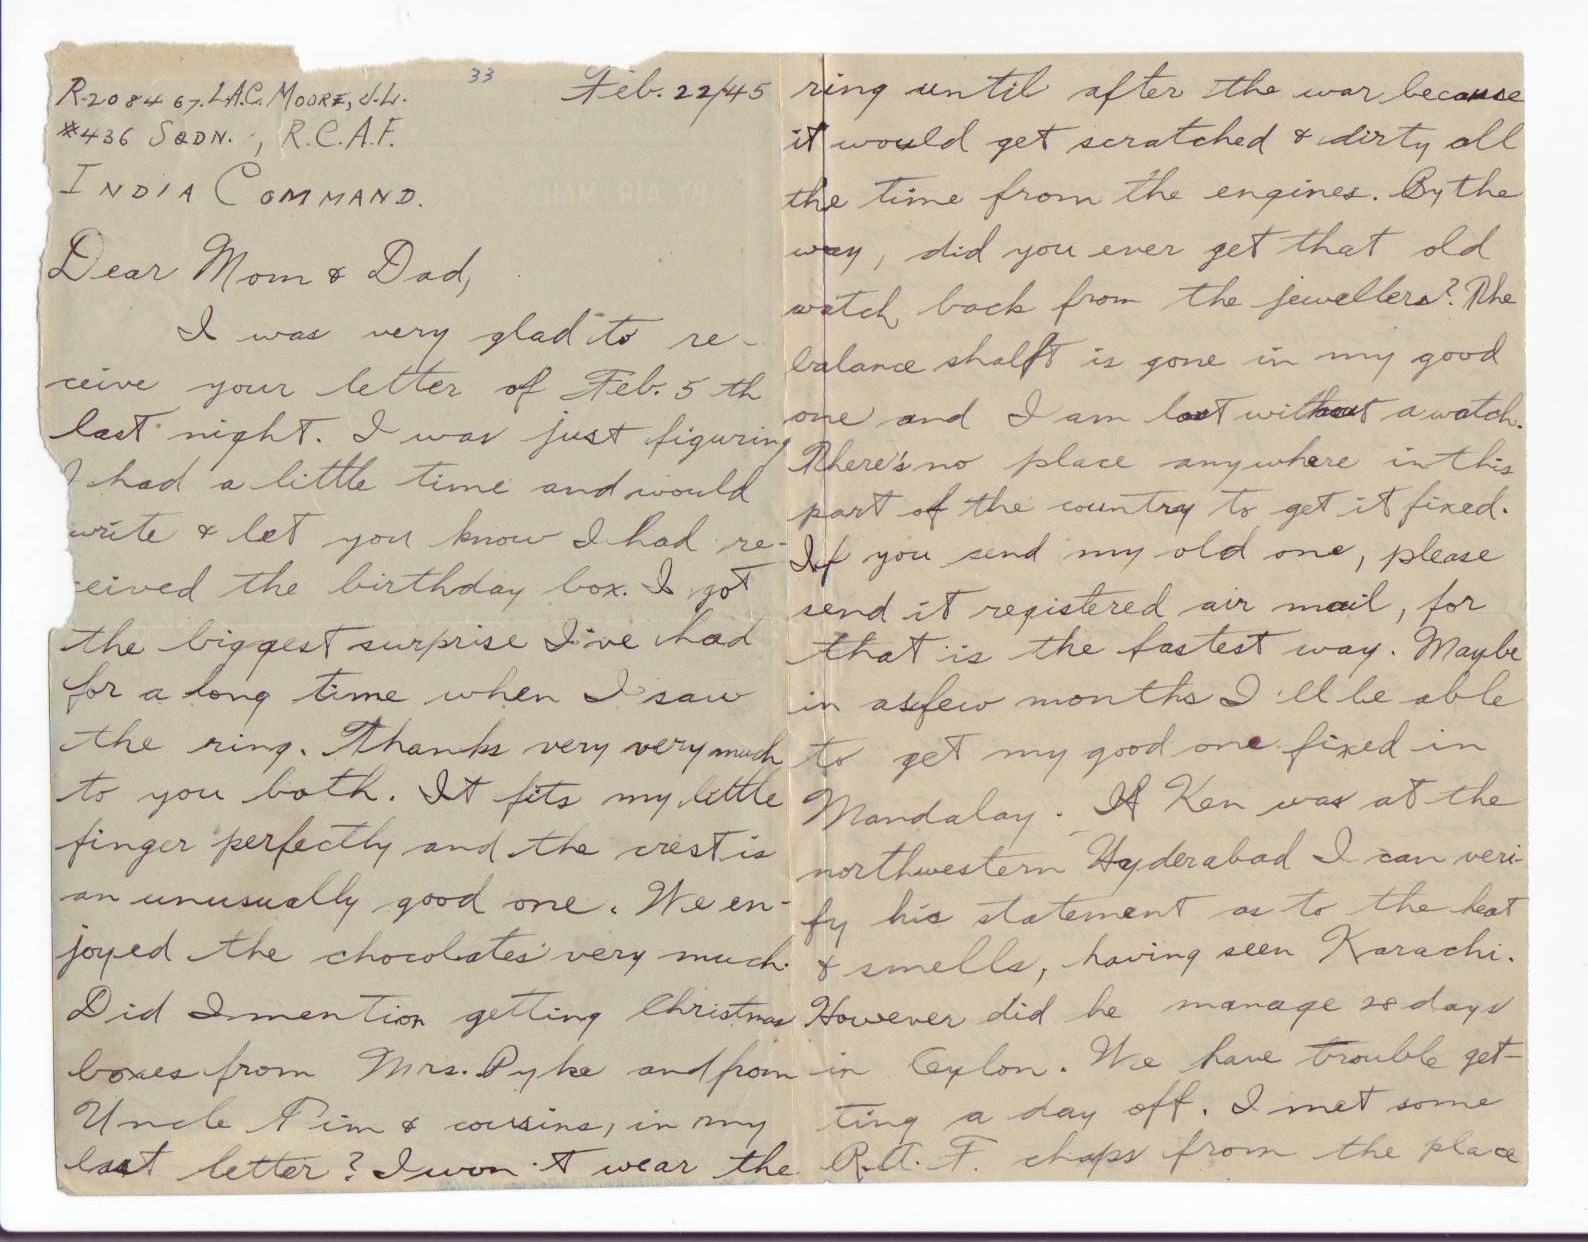 33
R-208467. L.A.C. MOORE, J.L.
Feb. 22/45
#436 SQDN., R.C.A.F.
INDIA COMMAND.
Dear Mom & Dad,
I was very glad to re-
ceive your letter of Feb. 5th
last night. I was just figuring
I had a little time and would
write & let you know I had re-
ceived the birthday box. I got
the biggest surprise I've had
for a long time when I saw
the ring. Thanks very very much
to you both. It fits my little
finger perfectly and the crest is
an unusually good one. We en-
joyed the chocolates very much.
Did I mention getting Christmas
boxes from Mrs. Pyke and from
Uncle Tim & cousins, in my
last letter? I won't wear the
ring until after the war because
it would get scratched & dirty all
the time from the engines. By the
way, did you ever get that old
watch back from the jewellers? The
balance shaft is gone in my good
one and I am lost without a watch.
There's no place anywhere in this
part of the country to get it fixed.
If you send my old one, please
send it registered air mail, for
that is the fastest way. Maybe
in a few months I'll be able
to get my good one fixed in
Mandalay. If Ken was at the
northwestern Hyderabad I can veri-
fy his statement as to the heat
& smells, having seen Karachi.
However did he manage 28 days
in Ceylon. We have trouble get-
ting a day off. I met some
R.A.F. chaps from the place